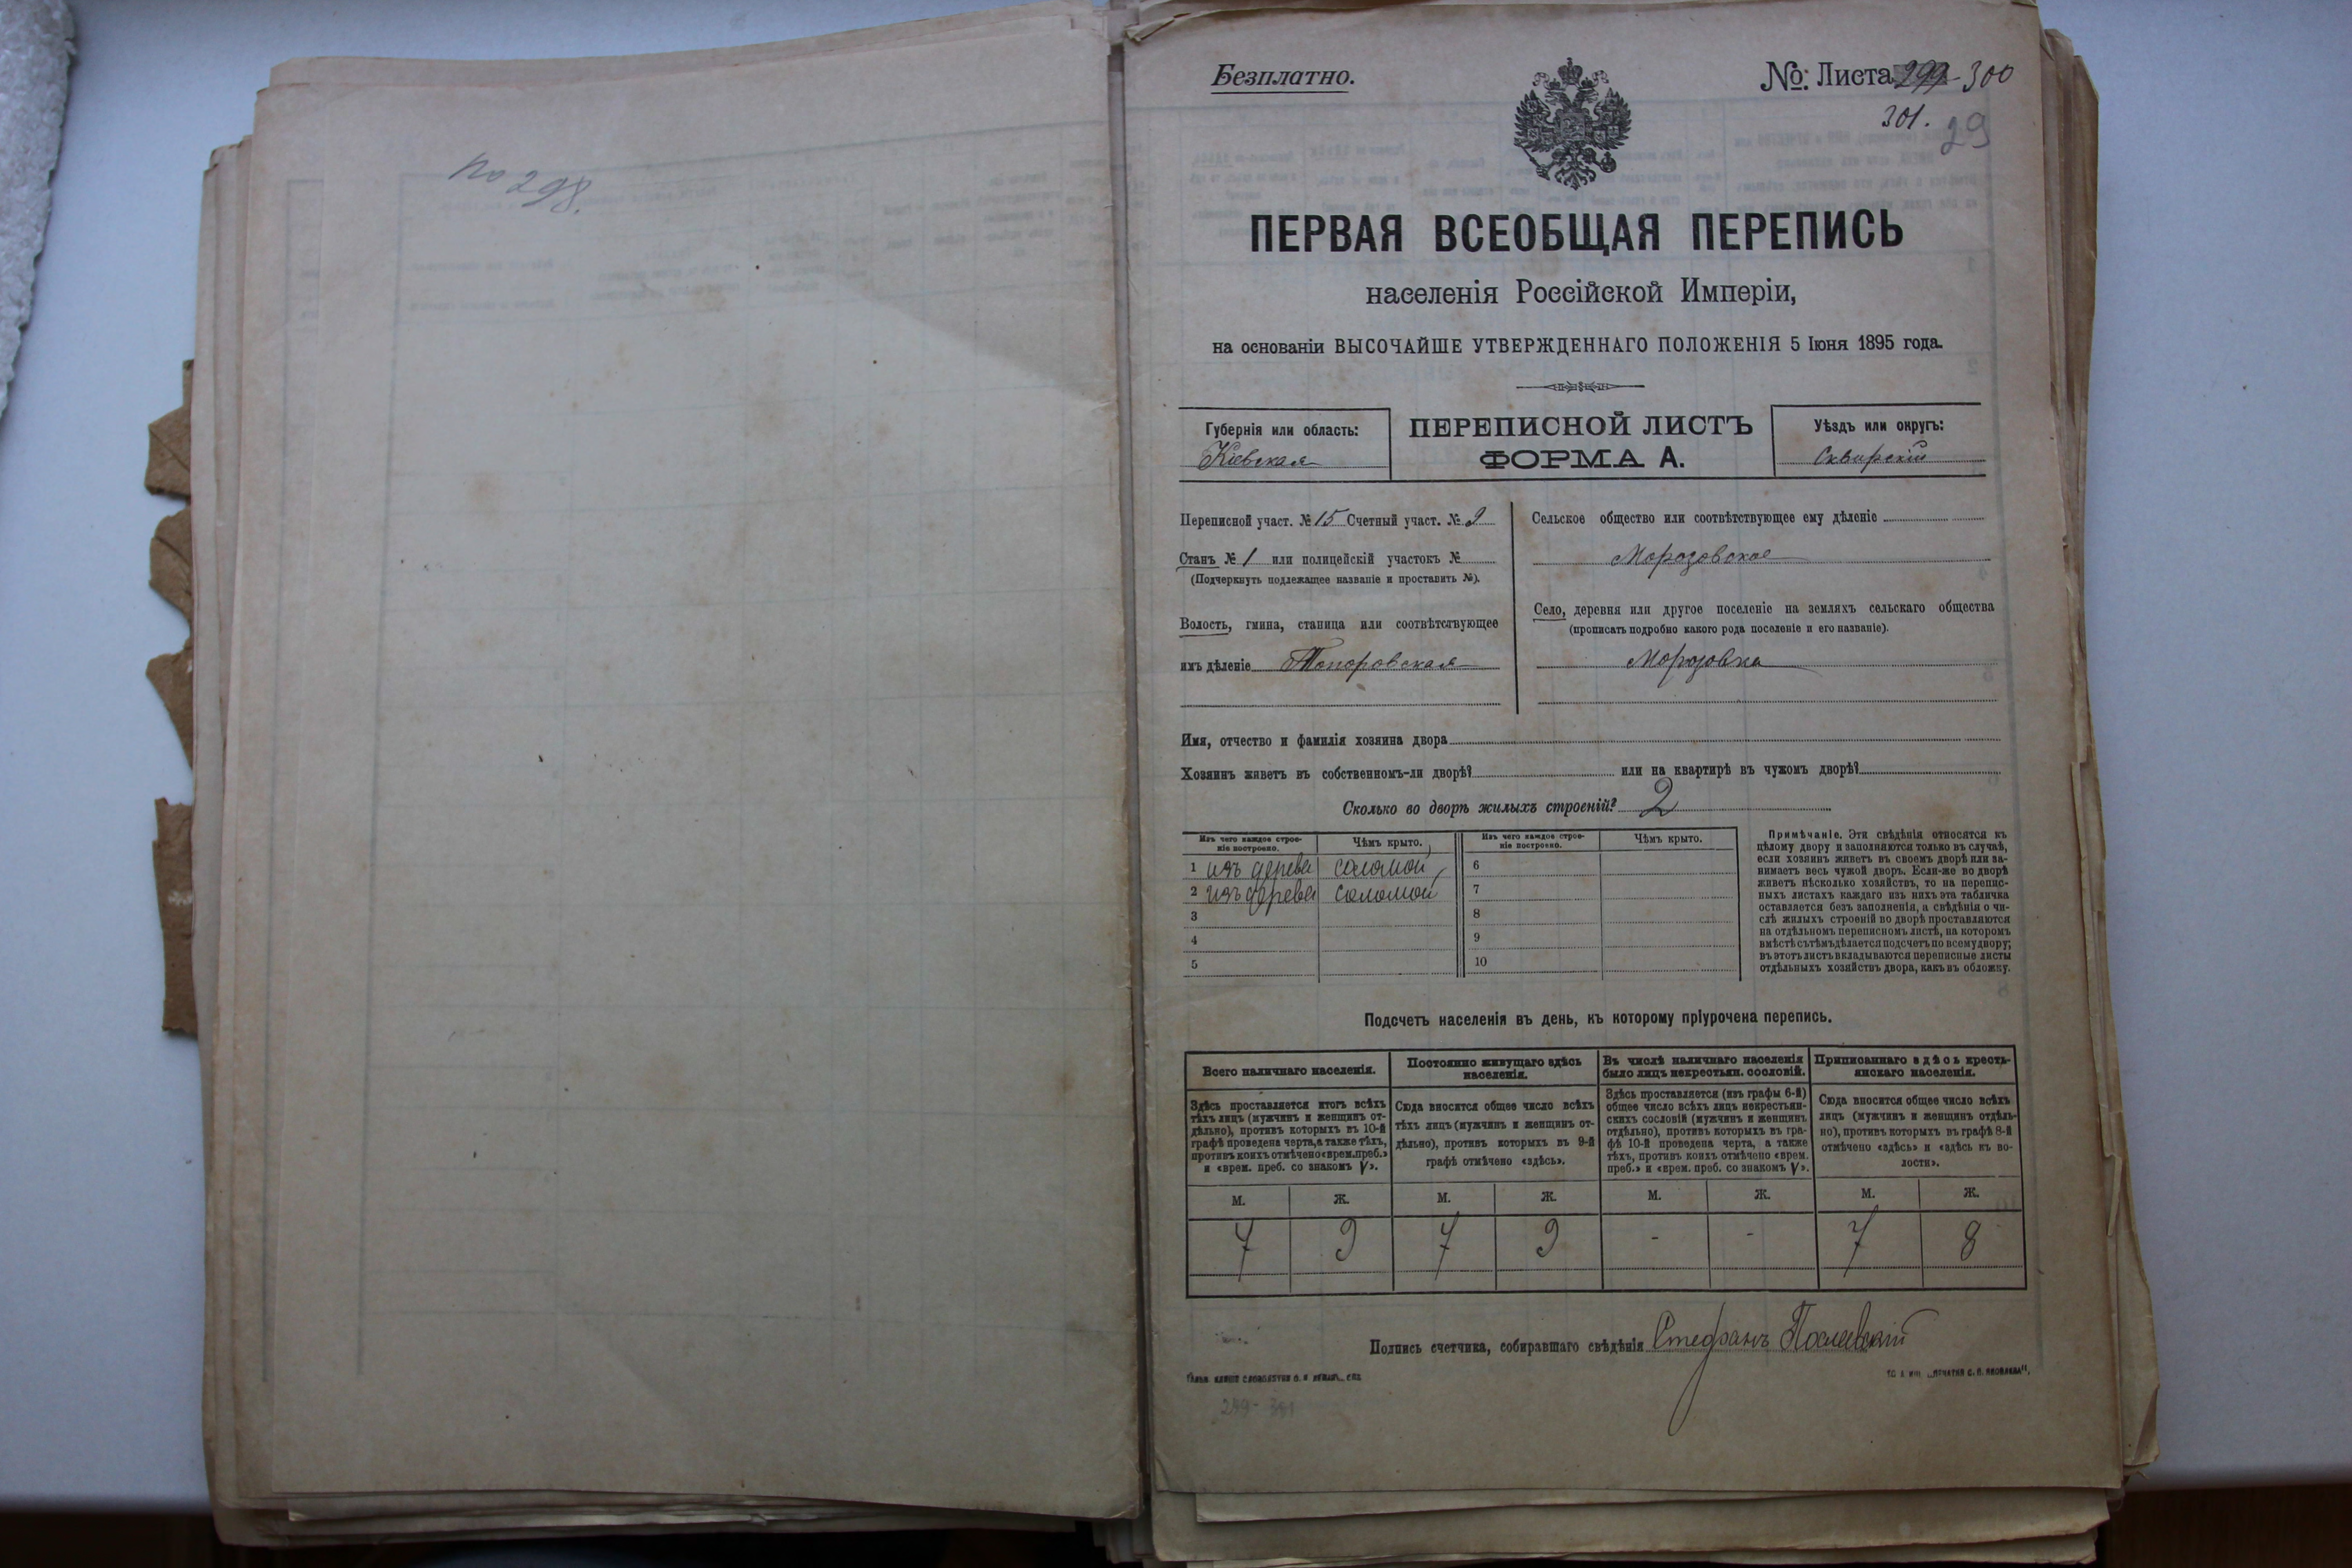 No 298.
Безплатно.
№: Листа 299-300
301.
29
ПЕРВАЯ ВСЕОБЩАЯ ПЕРЕПИСЬ
населенія Россійской Имперіи,
на основаніи ВЫСОЧАЙШЕ УТВЕРЖДЕННАГО ПОЛОЖЕНІЯ 5 Іюня 1895 года.
Губернія или область:
Кіевская
ПЕРЕПИСНОЙ ЛИСТЪ
ФОРМА А.
Уѣздъ или округъ:
Сквирскій
Переписной участ. № 15 Счетный участ. № 9
Станъ № 1 или полицейскій участокъ №
(Подчеркнуть подлежащее названіе и проставить №).
Волость, гмина, станица или соотвѣтствующее
имъ дѣленіе Топоровская
Сельское общество или соотвѣтствующее ему дѣленіе
Морозовское
Село, деревня или другое поселеніе на земляхъ сельскаго общества
(прописать подробно какого рода поселеніе и его названіе).
Морозовка
Имя, отчество и фамилія хозяина двора
Хозяинъ живетъ въ собственномъ-ли дворѣ? или на квартирѣ въ чужомъ дворѣ?
Сколько во дворѣ жилыхъ строеній? 2
Изъ чего каждое строе-
ніе построено.
Чѣмъ крыто.
1 изъ дерева соломой
2 изъ дерева соломой
3
4
5
Изъ чего каждое строе-
ніе построено.
Чѣмъ крыто.
6
7
8
9
10
Примѣчаніе. Эти свѣдѣнія относятся къ
цѣлому двору и заполняются только въ случаѣ,
если хозяинъ живетъ въ своемъ дворѣ или за-
нимаетъ весь чужой дворъ. Если-же во дворѣ
живетъ нѣсколько хозяйствъ, то на перепис-
ныхъ листахъ каждаго изъ нихъ эта табличка
оставляется безъ заполненія, а свѣдѣнія о чи-
слѣ жилыхъ строеній во дворѣ проставляются
на отдѣльномъ переписномъ листѣ, на которомъ
вмѣстѣ съ тѣмъ дѣлается подсчетъ по всему двору;
въ этотъ листъ вкладываются переписные листы
отдѣльныхъ хозяйствъ двора, какъ въ обложку.
Подсчетъ населенія въ день, къ которому пріурочена перепись.
Всего наличнаго населенія.
Здѣсь проставляется итогъ всѣхъ
тѣхъ лицъ (мужчинъ и женщинъ от-
дѣльно), противъ которыхъ въ 10-й
графѣ проведена черта, а также тѣхъ,
противъ коихъ отмѣчено «врем. преб.»
и «врем. преб. со знакомъ V».
Постоянно живущаго здѣсь
населенія.
Сюда вносится общее число всѣхъ
тѣхъ лицъ (мужчинъ и женщинъ от-
дѣльно), противъ которыхъ въ 9-й
графѣ отмѣчено «здѣсь».
Въ числѣ наличнаго населенія
было лицъ некрестьян. сословій.
Здѣсь проставляется (изъ графы 6-й)
общее число всѣхъ лицъ некрестьян-
скихъ сословій (мужчинъ и женщинъ
отдѣльно), противъ которыхъ въ гра-
фѣ 10-й проведена черта, а также
тѣхъ, противъ коихъ отмѣчено «врем.
преб.» и «врем. преб. со знакомъ V».
Приписаннаго здѣсь кресть-
янскаго населенія.
Сюда вносится общее число всѣхъ
лицъ (мужчинъ и женщинъ отдѣль-
но), противъ которыхъ въ графѣ 8-й
отмѣчено «здѣсь» и «здѣсь къ во-
лости».
М. Ж. М. Ж. М. Ж. М. Ж.
7 9 7 9 - - 7 8
Подпись счетчика, собиравшаго свѣдѣнія Стефанъ
299-301